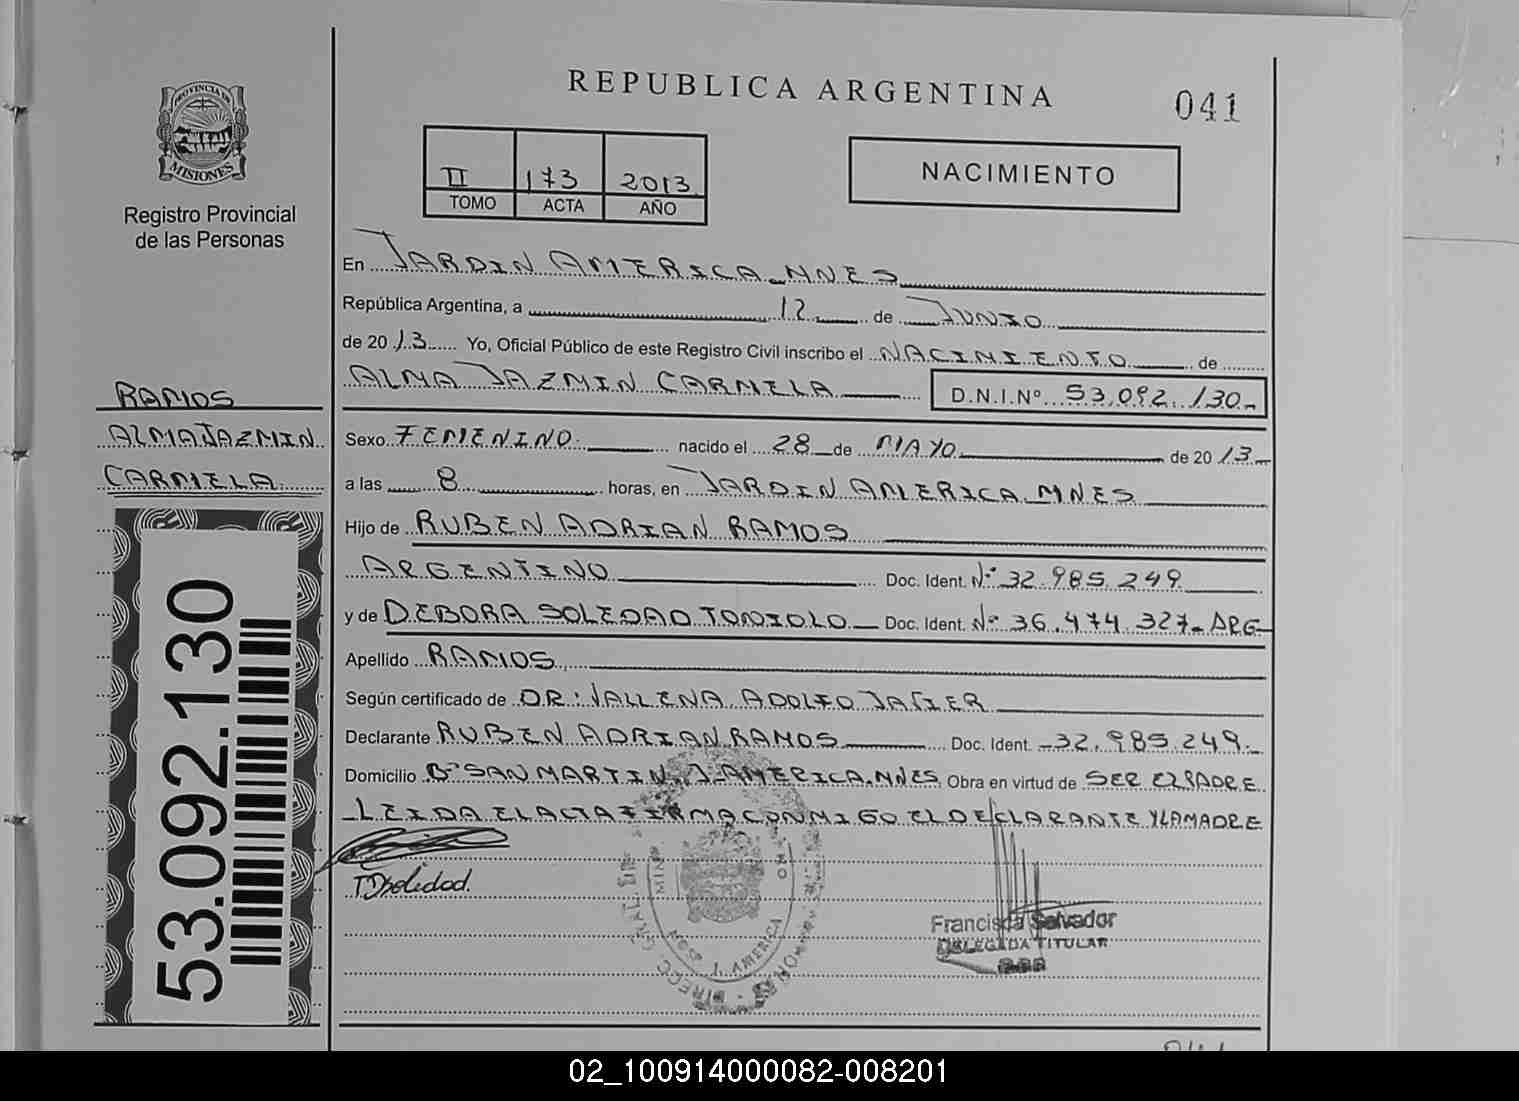 REPUBLICA ARGENTINA
041
PROVINCIA DE
MISIONES
Registro Provincial
de las Personas
II 173 2013
TOMO ACTA AÑO
NACIMIENTO
En JARDIN AMERICA - MNES
República Argentina, a 12 de JUNIO
de 2013 Yo, Oficial Público de este Registro Civil inscribo el NACIMIENTO de
ALMA JAZMIN CARMELA D.N.I.Nº 53.092.130-
RAMOS
ALMA JAZMIN
CARMELA
Sexo FEMENINO nacido el 28 de MAYO de 2013
a las 8 horas, en JARDIN AMERICA MNES
Hijo de RUBEN ADRIAN RAMOS
ARGENTINO Doc. Ident. Nº 32.985.249
y de DEBORA SOLEDAD TONIOLO Doc. Ident. Nº 36.474.327- ARG
Apellido RAMOS
Según certificado de DR: VALLENA ADOLFO JAVIER
Declarante RUBEN ADRIAN RAMOS Doc. Ident. 32.985.249-
Domicilio Bº SAN MARTIN J. AMERICA. MNES Obra en virtud de SER EL PADRE
LEIDA EL ACTA FIRMA CONMIGO EL DECLARANTE Y LA MADRE
53.092.130
J. AMERICA
Francisca Salvador
DELEGADA TITULAR
02_100914000082-008201